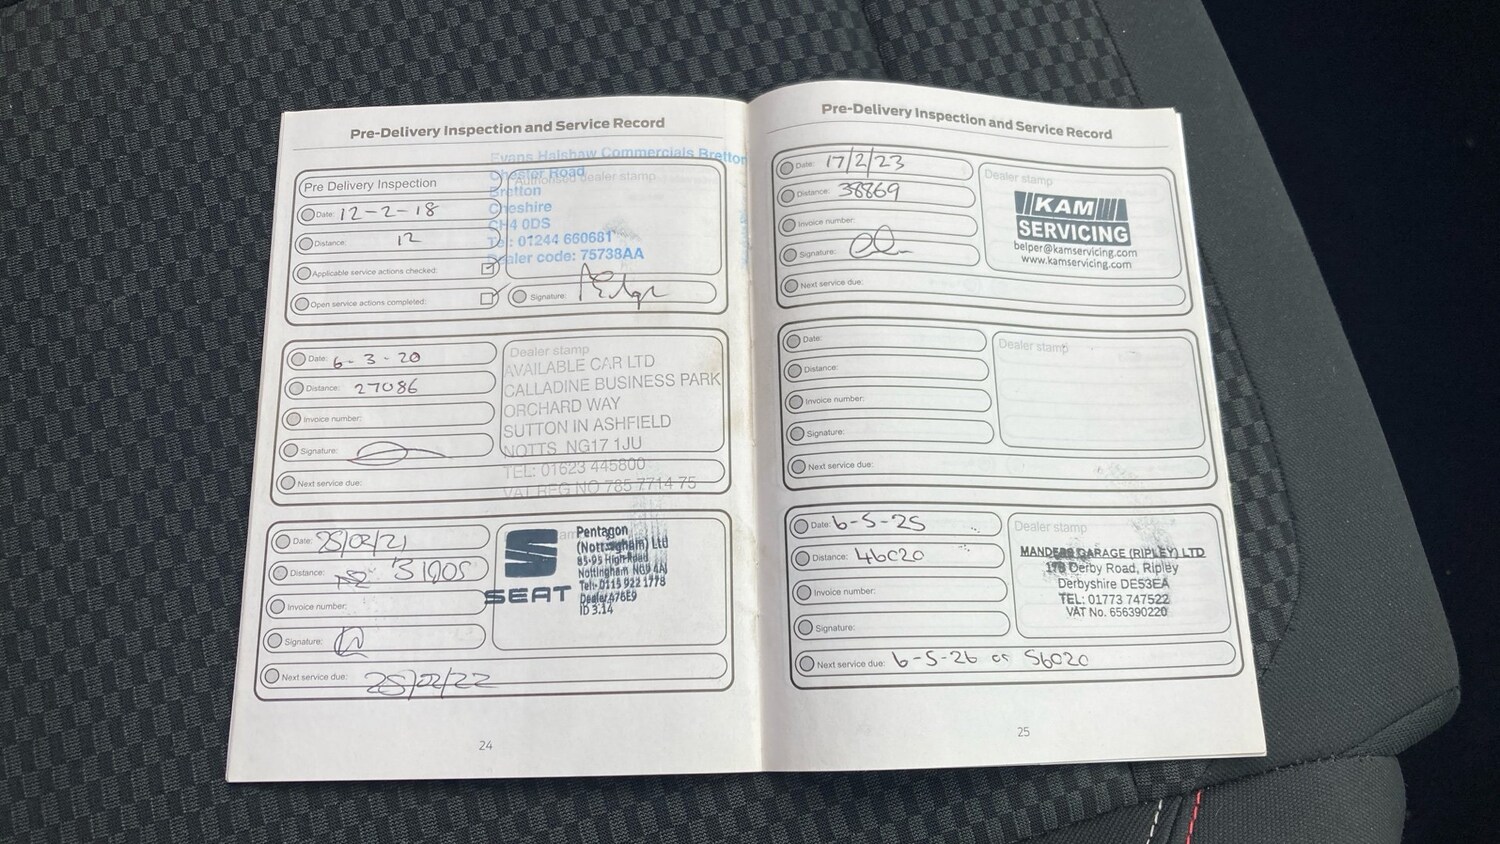 Pre-Delivery Inspection and Service Record
Evans Halshaw Commercials Bretton
Chester Road
Bretton
Cheshire
CH4 0DS
Tel: 01244 660681
Dealer code: 75738AA
Authorised dealer stamp
Pre Delivery Inspection
Date: 12-2-18
Distance: 12
Applicable service actions checked:
Open service actions completed:
Signature:
Date: 6-3-20
Distance: 27086
Invoice number:
Signature:
Next service due:
Dealer stamp
AVAILABLE CAR LTD
CALLADINE BUSINESS PARK
ORCHARD WAY
SUTTON IN ASHFIELD
NOTTS NG17 1JU
TEL: 01623 445800
VAT REG NO 785 7714 75
Date: 25/02/21
Distance: 31905
Invoice number:
Signature:
Next service due: 25/02/22
SEAT
Pentagon
(Nottingham) Ltd
85-95 High Road
Nottingham NG9 4AJ
Tel:- 0115 922 1778
Dealer 476E9
ID 3.14
24
Pre-Delivery Inspection and Service Record
Date: 17/2/23
Distance: 38869
Invoice number:
Signature:
Next service due:
Dealer stamp
KAM
SERVICING
belper@kamservicing.com
www.kamservicing.com
Date:
Distance:
Invoice number:
Signature:
Next service due:
Dealer stamp
Date: 6-5-25
Distance: 46020
Invoice number:
Signature:
Next service due: 6-5-26 or 56020
Dealer stamp
MANDERS GARAGE (RIPLEY) LTD
178 Derby Road, Ripley
Derbyshire DE53EA
TEL: 01773 747522
VAT No. 656390220
25